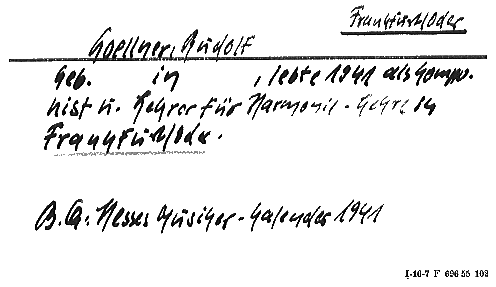 Frankfurt/Oder
Goellner, Rudolf
Geb. in , lebte 1941 als Kompo-
nist u. Lehrer für Harmonie-Lehre in
Frankfurt/Oder.
B. Q.: Hesses Musiker-Kalender 1941
I-16-7 F 696 55 103